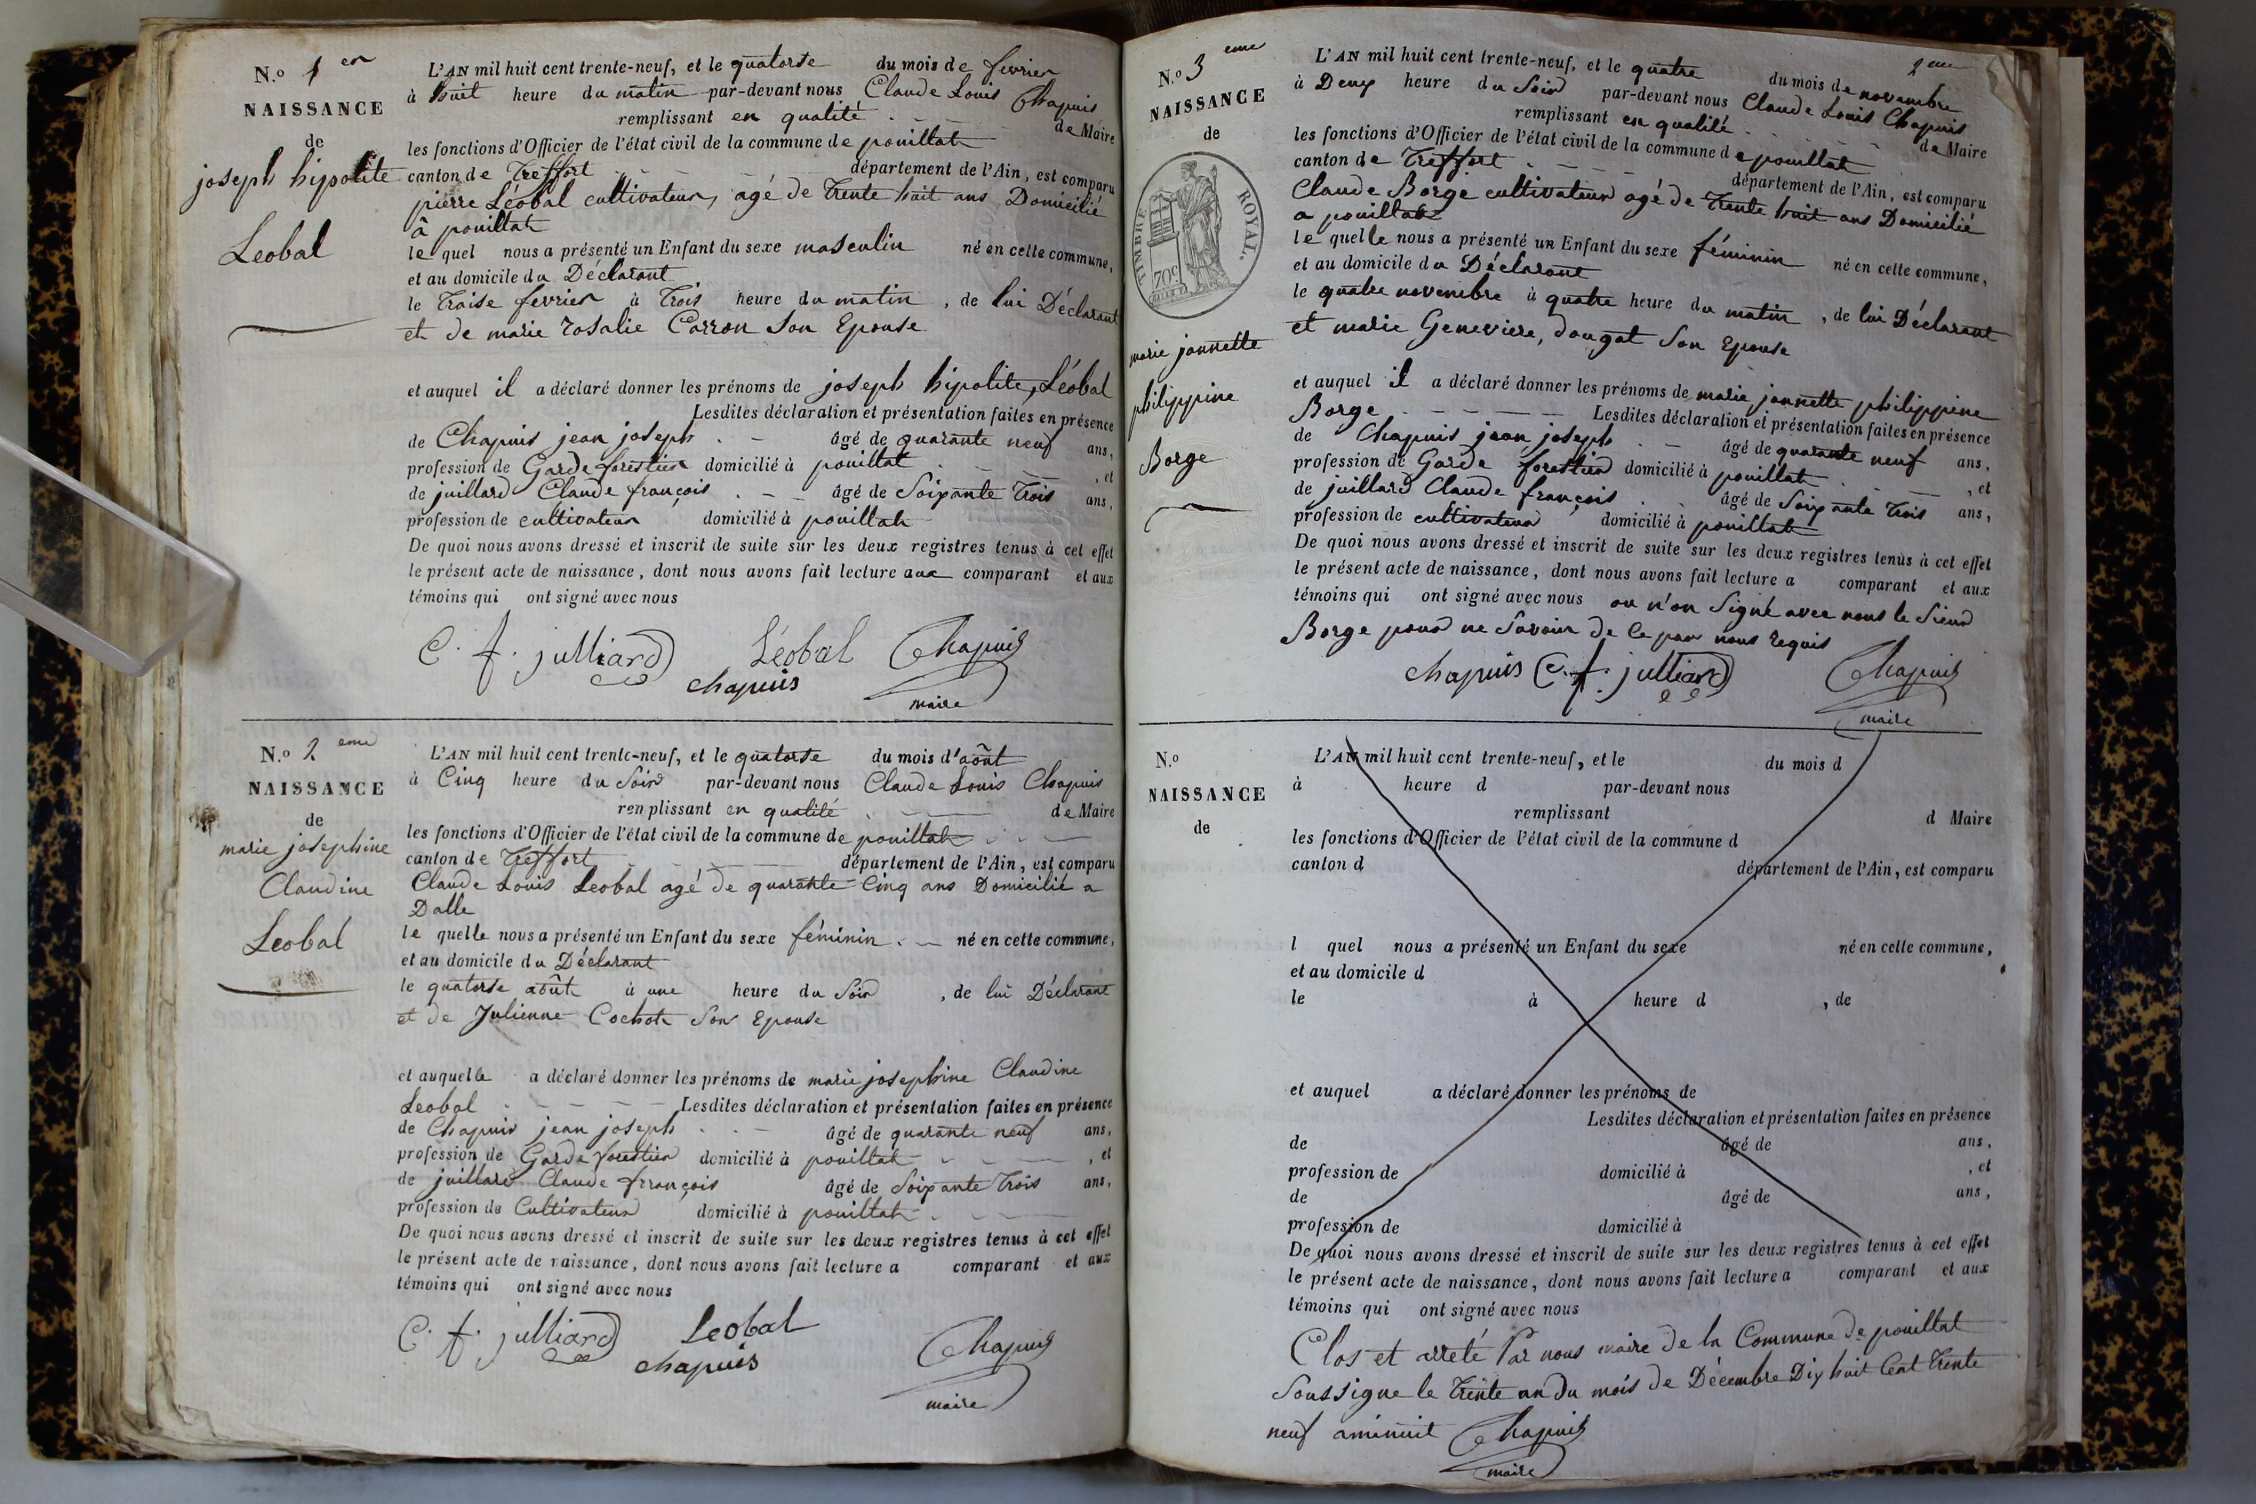 N.º 1er
NAISSANCE
de
joseph hipolite
Leobal
L'AN mil huit cent trente-neuf, et le quatorse du mois de fevrier
à huit heure du matin par-devant nous Claude Louis Chapuis
remplissant en qualité de Maire
les fonctions d'Officier de l'état civil de la commune de pouillat
canton de Treffort département de l'Ain, est comparu
pierre Léobal cultivateur, agé de Trente huit ans Domicilié
à pouillat
le quel nous a présenté un Enfant du sexe masculin né en cette commune,
et au domicile du Déclarant
le Traise fevrier à Trois heure du matin, de lui Déclarant
et de marie rosalie Carron Son Epouse
et auquel il a déclaré donner les prénoms de joseph hipolite, Léobal
Lesdites déclaration et présentation faites en présence
de Chapuis jean joseph âgé de quarante neuf ans,
profession de Garde forestier domicilié à pouillat, et
de juillard Claude françois âgé de Soixante Trois ans,
profession de cultivateur domicilié à pouillat
De quoi nous avons dressé et inscrit de suite sur les deux registres tenus à cet effet
le présent acte de naissance, dont nous avons fait lecture aux comparant et aux
témoins qui ont signé avec nous
C. f. julliard Léobal Chapuis
chapuis maire
N.º 2eme
NAISSANCE
de
marie josephine
Claudine
Leobal
L'AN mil huit cent trente-neuf, et le quatorse du mois d'août
à Cinq heure du Soir par-devant nous Claude Louis Chapuis
remplissant en qualité de Maire
les fonctions d'Officier de l'état civil de la commune de pouillat
canton de Treffort département de l'Ain, est comparu
Claude Louis Leobal agé de quarante Cinq ans Domicilié a
Dalle
le quelle nous a présenté un Enfant du sexe féminin né en cette commune,
et au domicile du Déclarant
le quatorse août à une heure du Soir, de lui Déclarant
et de Julienne Cochet Son Epouse
et auquelle a déclaré donner les prénoms de marie josephine Claudine
Leobal Lesdites déclaration et présentation faites en présence
de Chapuis jean joseph âgé de quarante neuf ans,
profession de Garde forestier domicilié à pouillat, et
de juillard Claude françois âgé de Soixante Trois ans,
profession de Cultivateur domicilié à pouillat
De quoi nous avons dressé et inscrit de suite sur les deux registres tenus à cet effet
le présent acte de naissance, dont nous avons fait lecture a comparant et aux
témoins qui ont signé avec nous
C. f. julliard Leobal Chapuis
chapuis maire
2eme
N.º 3eme
NAISSANCE
de
TIMBRE ROYAL.
70c
marie jannette
philippine
Borge
L'AN mil huit cent trente-neuf, et le quatre du mois de novembre
à Deux heure du Soir par-devant nous Claude Louis Chapuis
remplissant en qualité de Maire
les fonctions d'Officier de l'état civil de la commune de pouillat
canton de Treffort département de l'Ain, est comparu
Claude Borge cultivateur agé de Trente huit ans Domicilié
a pouillat
le quelle nous a présenté un Enfant du sexe féminin né en cette commune,
et au domicile du Déclarant
le quatre novembre à quatre heure du matin, de lui Déclarant
et marie Genevieve, dougat Son Epouse
et auquel il a déclaré donner les prénoms de marie jannette philippine
Borge Lesdites déclaration et présentation faites en présence
de Chapuis jean joseph âgé de quarante neuf ans,
profession de Garde forestier domicilié à pouillat, et
de juillard Claude françois âgé de Soixante Trois ans,
profession de cultivateur domicilié à pouillat
De quoi nous avons dressé et inscrit de suite sur les deux registres tenus à cet effet
le présent acte de naissance, dont nous avons fait lecture a comparant et aux
témoins qui ont signé avec nous ou n'on Signé avec nous le Sieur
Borge pour ne Savoir de Ce par nous requis
chapuis C. f. julliard Chapuis
maire
N.º
NAISSANCE
de
L'AN mil huit cent trente-neuf, et le du mois d
à heure d par-devant nous
remplissant d Maire
les fonctions d'Officier de l'état civil de la commune d
canton d département de l'Ain, est comparu
l quel nous a présenté un Enfant du sexe né en cette commune,
et au domicile d
le à heure d, de
et auquel a déclaré donner les prénoms de
Lesdites déclaration et présentation faites en présence
de âgé de ans,
profession de domicilié à, et
de âgé de ans,
profession de domicilié à
De quoi nous avons dressé et inscrit de suite sur les deux registres tenus à cet effet
le présent acte de naissance, dont nous avons fait lecture a comparant et aux
témoins qui ont signé avec nous
Clos et arreté Par nous maire de la Commune de pouillat
Soussigne le Trente un Du mois de Décembre Dix huit Cent Trente
neuf aminuit Chapuis
maire